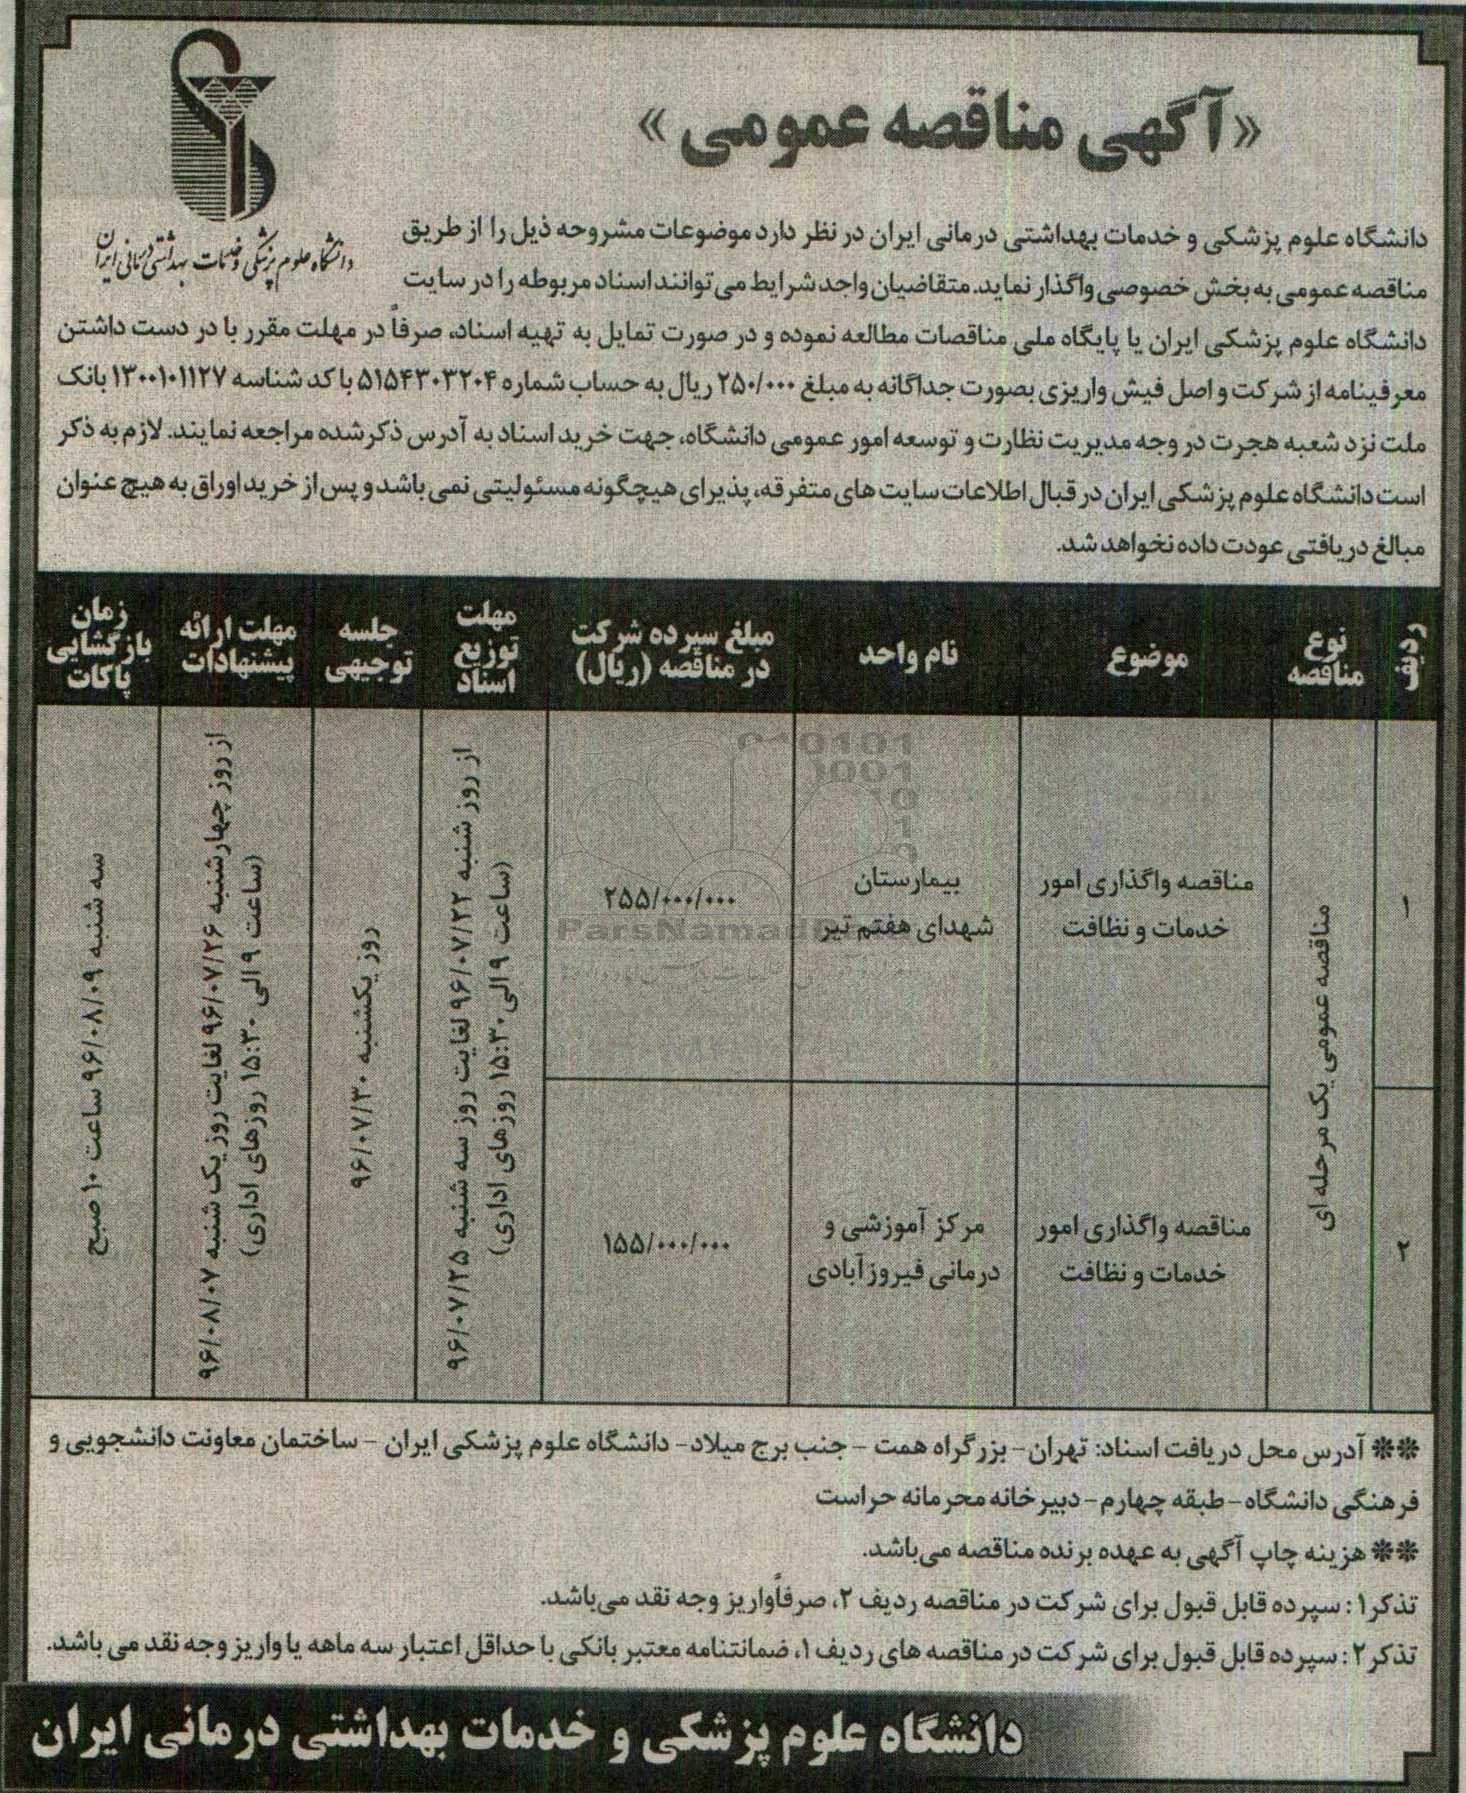 «آگهی مناقصه عمومی»
دانشگاه علوم پزشکی و خدمات بهداشتی درمانی ایران
دانشگاه علوم پزشکی و خدمات بهداشتی درمانی ایران در نظر دارد موضوعات مشروحه ذیل را از طریق
مناقصه عمومی به بخش خصوصی واگذار نماید. متقاضیان واجد شرایط می توانند اسناد مربوطه را در سایت
دانشگاه علوم پزشکی ایران یا پایگاه ملی مناقصات مطالعه نموده و در صورت تمایل به تهیه اسناد، صرفاً در مهلت مقرر با در دست داشتن
معرفینامه از شرکت و اصل فیش واریزی بصورت جداگانه به مبلغ ۲۵۰/۰۰۰ ریال به حساب شماره ۵۱۵۴۳۰۳۲۰۴ با کد شناسه ۱۳۰۰۱۰۱۱۲۷ بانک
ملت نزد شعبه هجرت در وجه مدیریت نظارت و توسعه امور عمومی دانشگاه، جهت خرید اسناد به آدرس ذکر شده مراجعه نمایند. لازم به ذکر
است دانشگاه علوم پزشکی ایران در قبال اطلاعات سایت های متفرقه، پذیرای هیچگونه مسئولیتی نمی باشد و پس از خرید اوراق به هیچ عنوان
مبالغ دریافتی عودت داده نخواهد شد.
ردیف
نوع
مناقصه
موضوع
نام واحد
مبلغ سپرده شرکت
در مناقصه (ریال)
مهلت
توزیع
اسناد
جلسه
توجیهی
مهلت ارائه
پیشنهادات
زمان
بازگشایی
پاکات
۱
مناقصه عمومی یک مرحله ای
مناقصه واگذاری امور
خدمات و نظافت
بیمارستان
شهدای هفتم تیر
۲۵۵/۰۰۰/۰۰۰
از روز شنبه ۹۶/۰۷/۲۲ لغایت روز سه شنبه ۹۶/۰۷/۲۵
(ساعت ۹ الی ۱۵:۳۰ روزهای اداری)
روز یکشنبه ۹۶/۰۷/۳۰
از روز چهارشنبه ۹۶/۰۷/۲۶ لغایت روز یک شنبه ۹۶/۰۸/۰۷
(ساعت ۹ الی ۱۵:۳۰ روزهای اداری)
سه شنبه ۹۶/۰۸/۰۹ ساعت ۱۰ صبح
۲
مناقصه واگذاری امور
خدمات و نظافت
مرکز آموزشی و
درمانی فیروزآبادی
۱۵۵/۰۰۰/۰۰۰
** آدرس محل دریافت اسناد: تهران- بزرگراه همت - جنب برج میلاد- دانشگاه علوم پزشکی ایران - ساختمان معاونت دانشجویی و
فرهنگی دانشگاه- طبقه چهارم- دبیرخانه محرمانه حراست
** هزینه چاپ آگهی به عهده برنده مناقصه می‌باشد.
تذکر۱: سپرده قابل قبول برای شرکت در مناقصه ردیف ۲، صرفاً واریز وجه نقد می‌باشد.
تذکر۲: سپرده قابل قبول برای شرکت در مناقصه های ردیف ۱، ضمانتنامه معتبر بانکی با حداقل اعتبار سه ماهه یا واریز وجه نقد می باشد.
دانشگاه علوم پزشکی و خدمات بهداشتی درمانی ایران